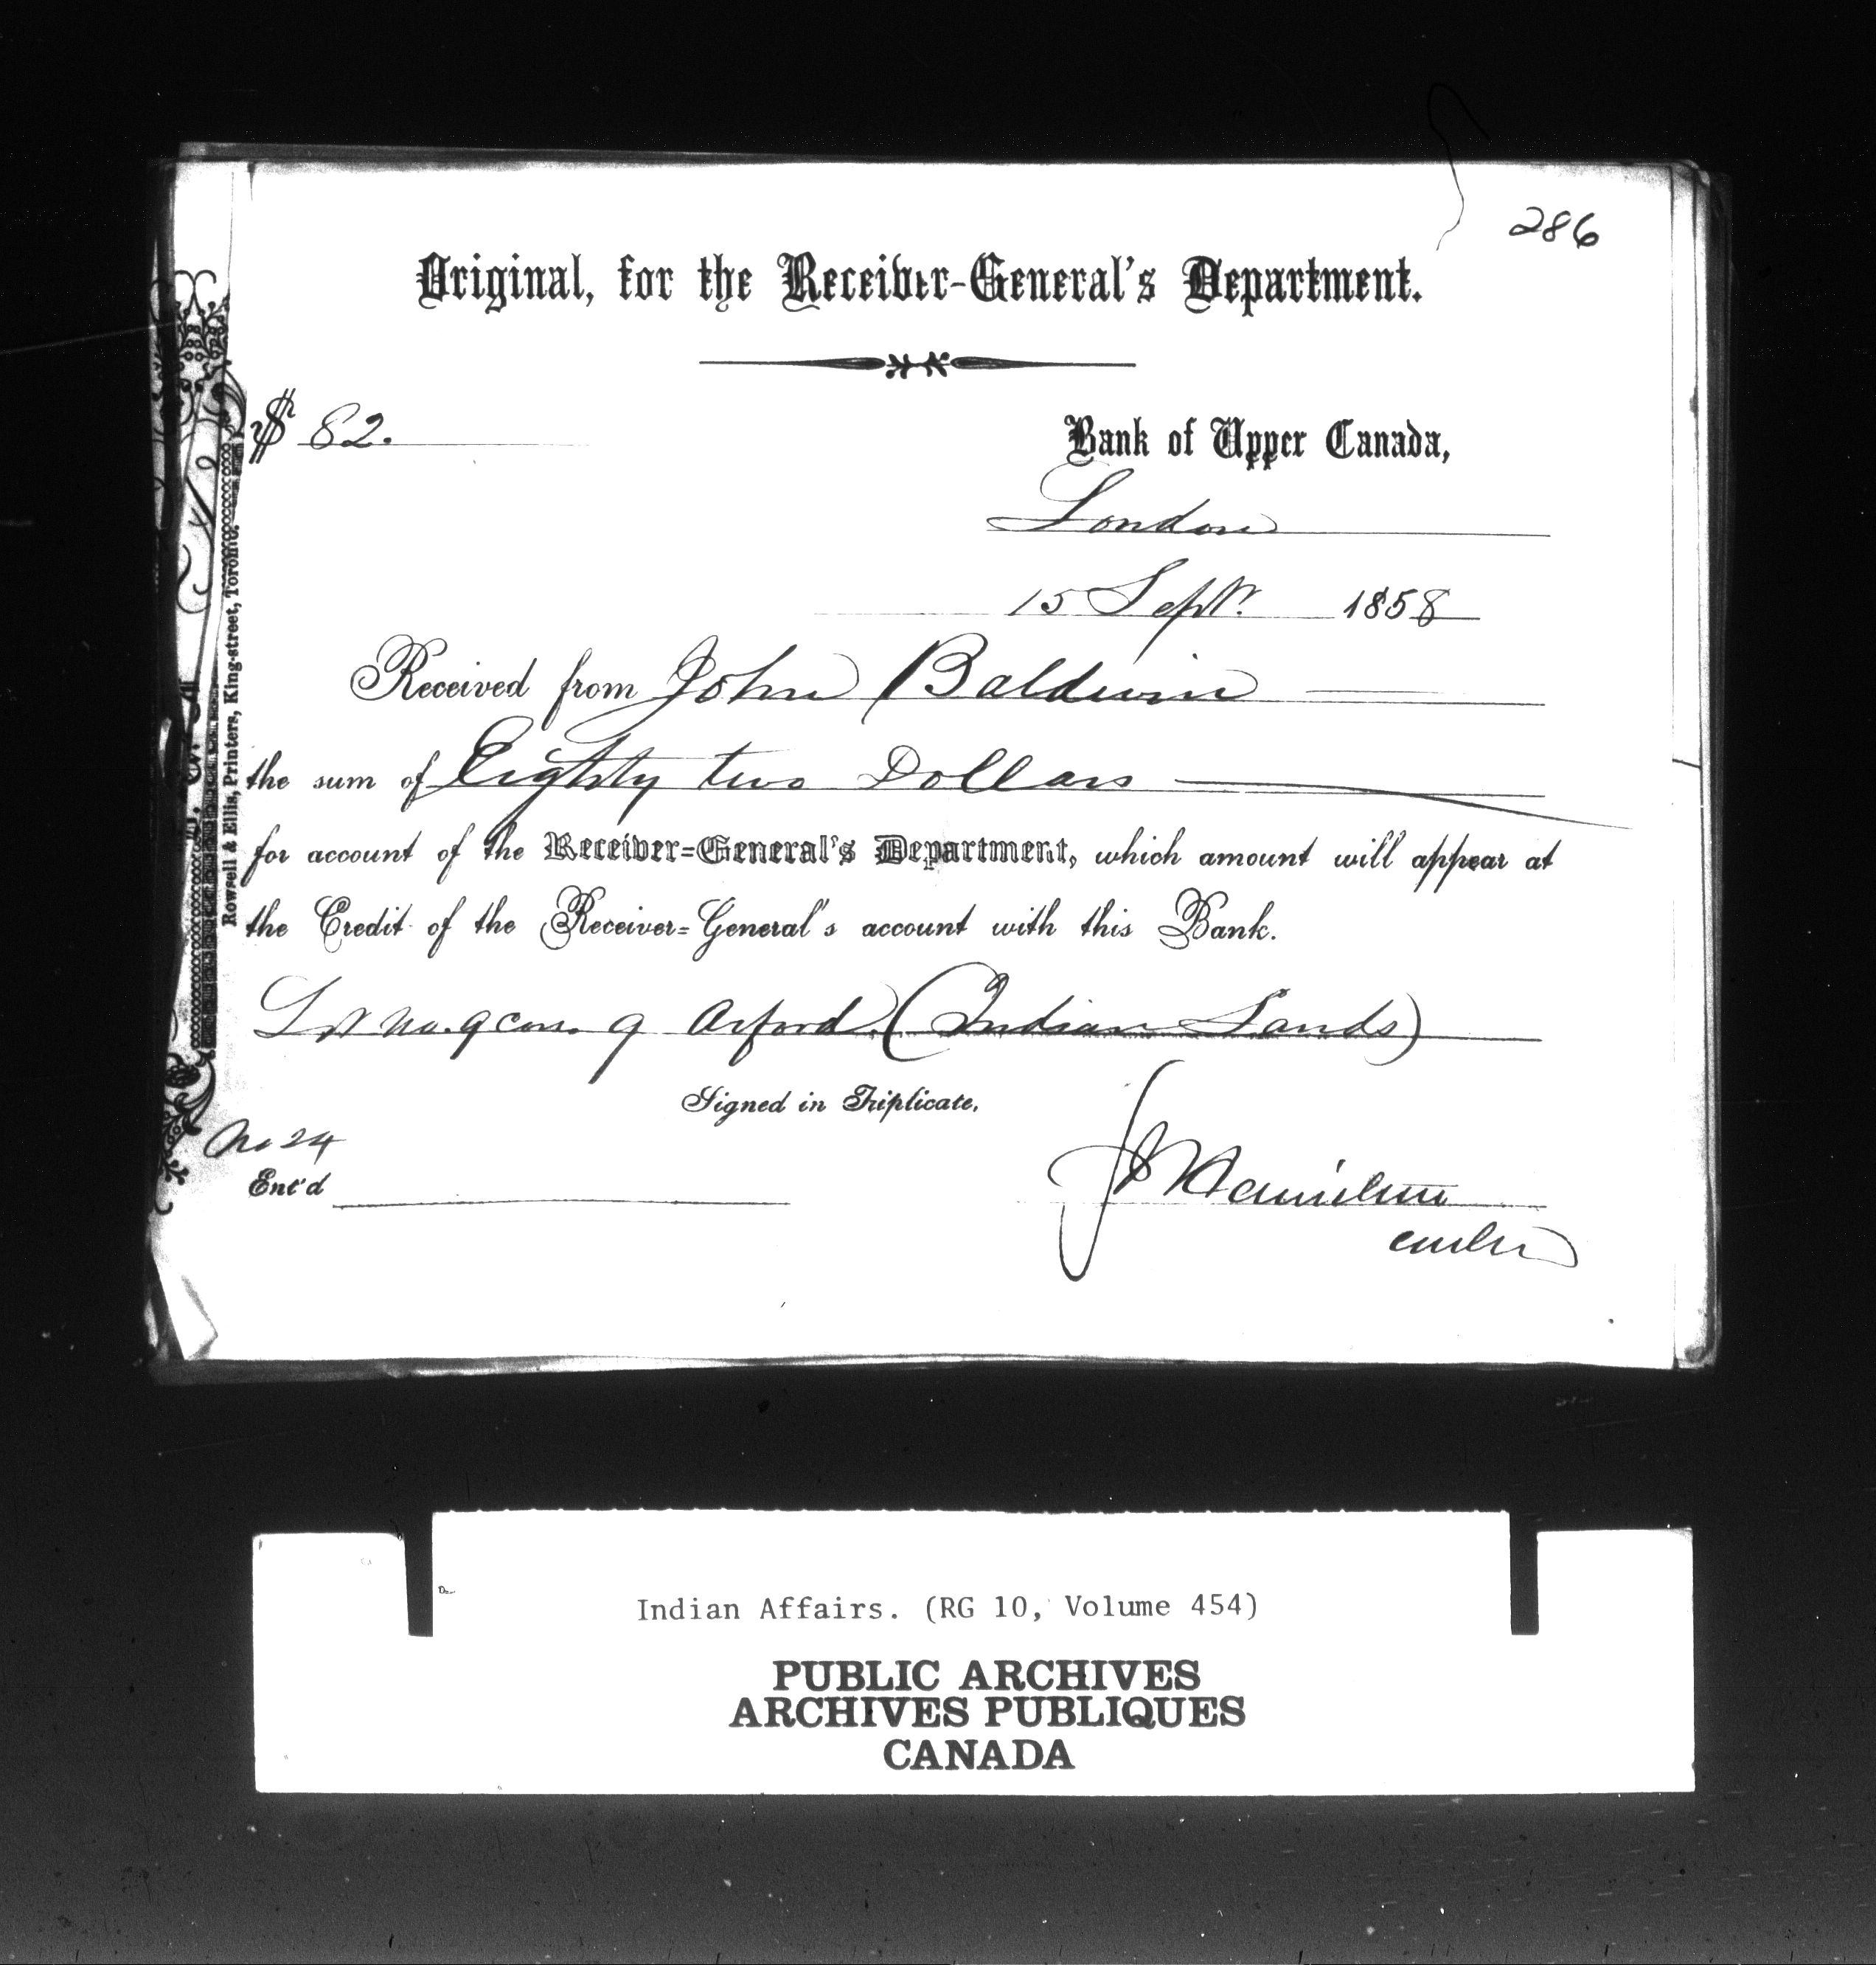 286
Original, for the Receiver-General's Department.
$ 82.
Bank of Upper Canada,
London
15 Sept. 1858
Received from John Baldwin
the sum of Eighty two Dollars
for account of the Receiver=General's Department, which amount will appear at
the Credit of the Receiver=General's account with this Bank.
Lot No. 9 con. 9 Orford. (Indian Lands)
Signed in Triplicate.
No 24
Ent'd
J Hamilton
Rowsell & Ellis, Printers, King-street, Toronto.
Indian Affairs. (RG 10, Volume 454)
PUBLIC ARCHIVES
ARCHIVES PUBLIQUES
CANADA